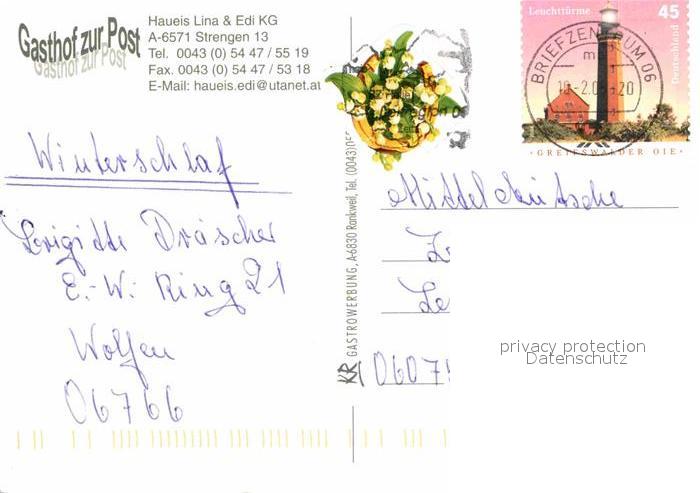 Gasthof zur Post
Haueis Lina & Edi KG
A-6571 Strengen 13
Tel. 0043 (0) 54 47 / 55 19
Fax. 0043 (0) 54 47 / 53 18
E-Mail: haueis.edi@utanet.at
Winterschlaf
Brigitte Dräscher
E.-W. Ring 21
Wolfen
06766
KR GASTROWERBUNG, A-6830 Rankweil, Tel. (0043)05
Leuchttürme
45
Deutschland
BRIEFZENTRUM 06
·GREIFSWALDER OIE·
Mitteldeutsche
Z
Le
0607
privacy protection
Datenschutz